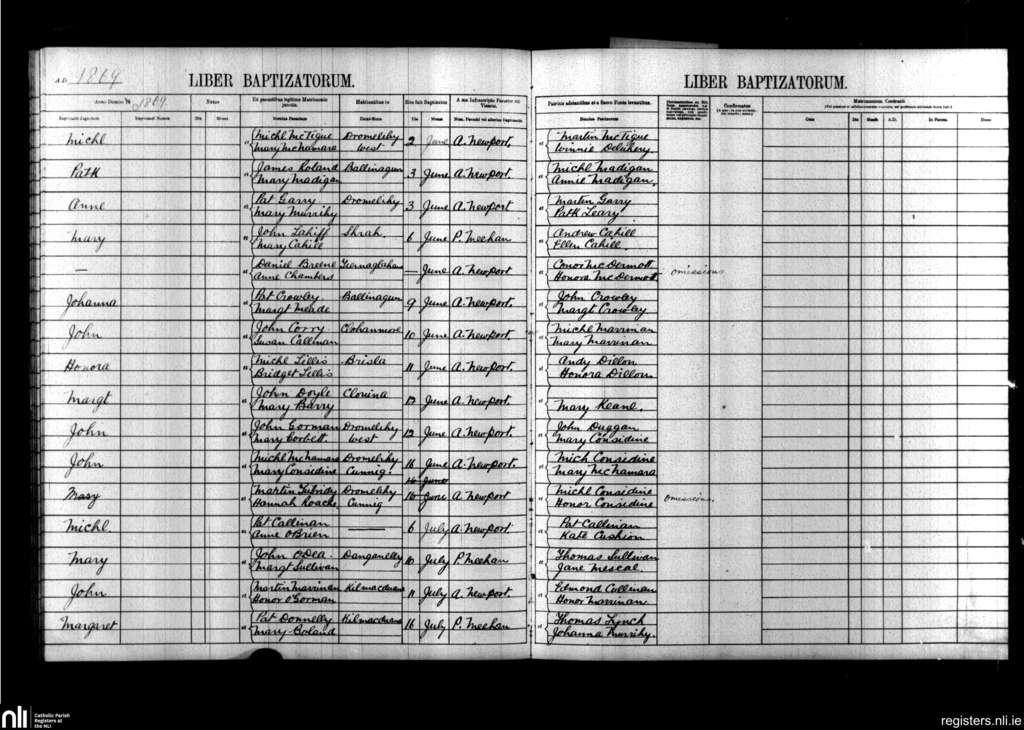 A.D. 1869
LIBER BAPTIZATORUM.
LIBER BAPTIZATORUM.
Anno Domini 1869.
Natus
Ex parentibus legitimo Matrimonio junctis.
Habitantibus in
Rite fuit Baptizatus
A me Infrascripto Parocho vel Vicario.
Patrinis adstantibus et e Sacro Fonte levantibus.
Confirmatus
Matrimonium Contraxit
Die
Mense
Die
Mense
Nomina Patrinorum
Die
Mense
A.D.
Michl
Michl McTigue Dromelihy 2 June A. Newport.
Mary McNamara West
Martin McTigue
Winnie Delahery
Patk
James Roland Ballinagun 3 June A. Newport.
Mary Madigan
Michl Madigan
Annie Madigan.
Anne
Pat Garry Dromelihy 3 June A. Newport
Mary Murrihy
Martin Garry
Patk Leary
Mary
John Lahiff Shrah. 6 June P. Meehan
Mary Cahill
Andrew Cahill
Ellen Cahill
—
Daniel Breene — June A. Newport
Anne Chambers
Conor McDermott
Honora McDermott omissions
Johanna
Pat Crowley Ballinagun 9 June A. Newport.
Margt Meade
John Crowley
Margt Crowley
John
John Corry Clohanmore 10 June A. Newport.
Susan Callinan
Michl Marrinan
Mary Marrinan
Honora
Michl Lillis Brisla 11 June A. Newport.
Bridget Lillis
Andy Dillon
Honora Dillon
Margt
John Doyle Clonina 12 June A. Newport.
Mary Barry
Mary Keane.
John
John Gorman Dromelihy 12 June A. Newport.
Mary Corbett West
John Duggan
Mary Considine
John
Michl McNamara Dromelihy 16 June A. Newport.
Mary Considine Cunnig
Mich Considine
Mary McNamara
Mary
Martin Dromelihy 16 June A. Newport
Hannah Roache Cunnig
Michl Considine
Honor Considine omissions.
Michl
Pat Callinan —— 6 July A. Newport
Anne O'Brien
Pat Callinan
Kate Cushion
Mary
John O'Dea Danganelly 10 July P. Meehan
Margt Sullivan
Thomas Sullivan
Jane Mescal
John
Martin Marrinan Kilmacduane 11 July A. Newport.
Honor O'Gorman
Edmond Cullinan
Honor Marrinan
Margaret
Pat Donnelly Kilmacduane 16 July P. Meehan
Mary Boland
Thomas Lynch
Johanna Murrihy.
nli Catholic Parish
Registers at
the NLI
registers.nli.ie